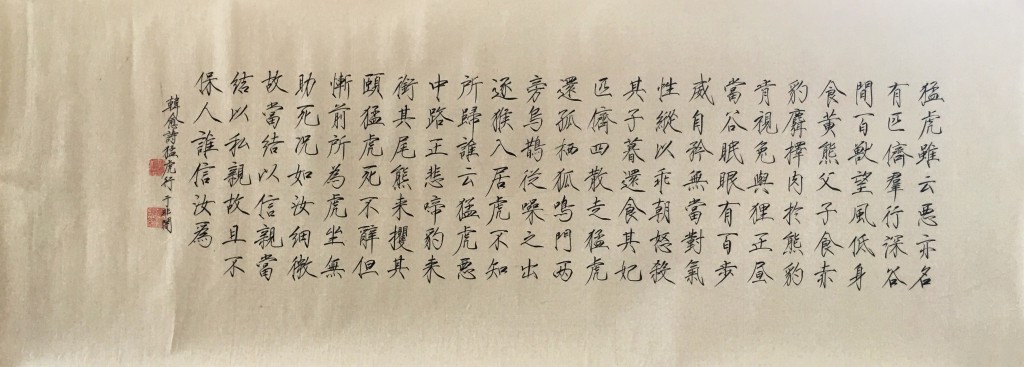 猛虎雖云惡亦各
有匹儕羣行深谷
間百獸望風低身
食黃熊父子食赤
豹麛擇肉於熊豹
肯視兔與狸正晝
當谷眠眼有百步
威自矜無當對氣
性縱以乖朝怒殺
其子暮還食其妃
匹儕四散走猛虎
還孤栖狐鳴門兩
旁烏鵲從噪之出
逐猴入居虎不知
所歸誰云猛虎惡
中路正悲啼豹來
銜其尾熊來攫其
頤猛虎死不辭但
慚前所為虎坐無
助死況如汝細微
故當結以信親當
結以私親故且不
保人誰信汝為
韓愈詩猛虎行